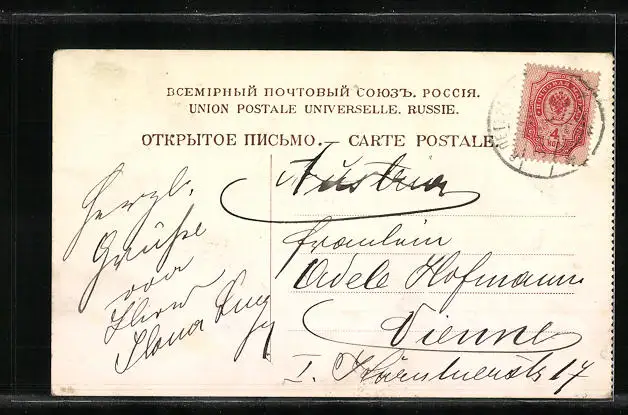 ВСЕМІРНЫЙ ПОЧТОВЫЙ СОЮЗЪ. РОССІЯ.
UNION POSTALE UNIVERSELLE. RUSSIE.
ОТКРЫТОЕ ПИСЬМО. — CARTE POSTALE.
4
Austria
Herzl.
Grüße
von
Ilona
Fraulein
Adele Hofmann
Vienne
I. Kärntnerstr 17